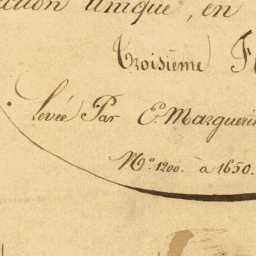 ction Unique, en
Troisième F
Levée Par E. Marguerin
N.º 1200. à 1650.